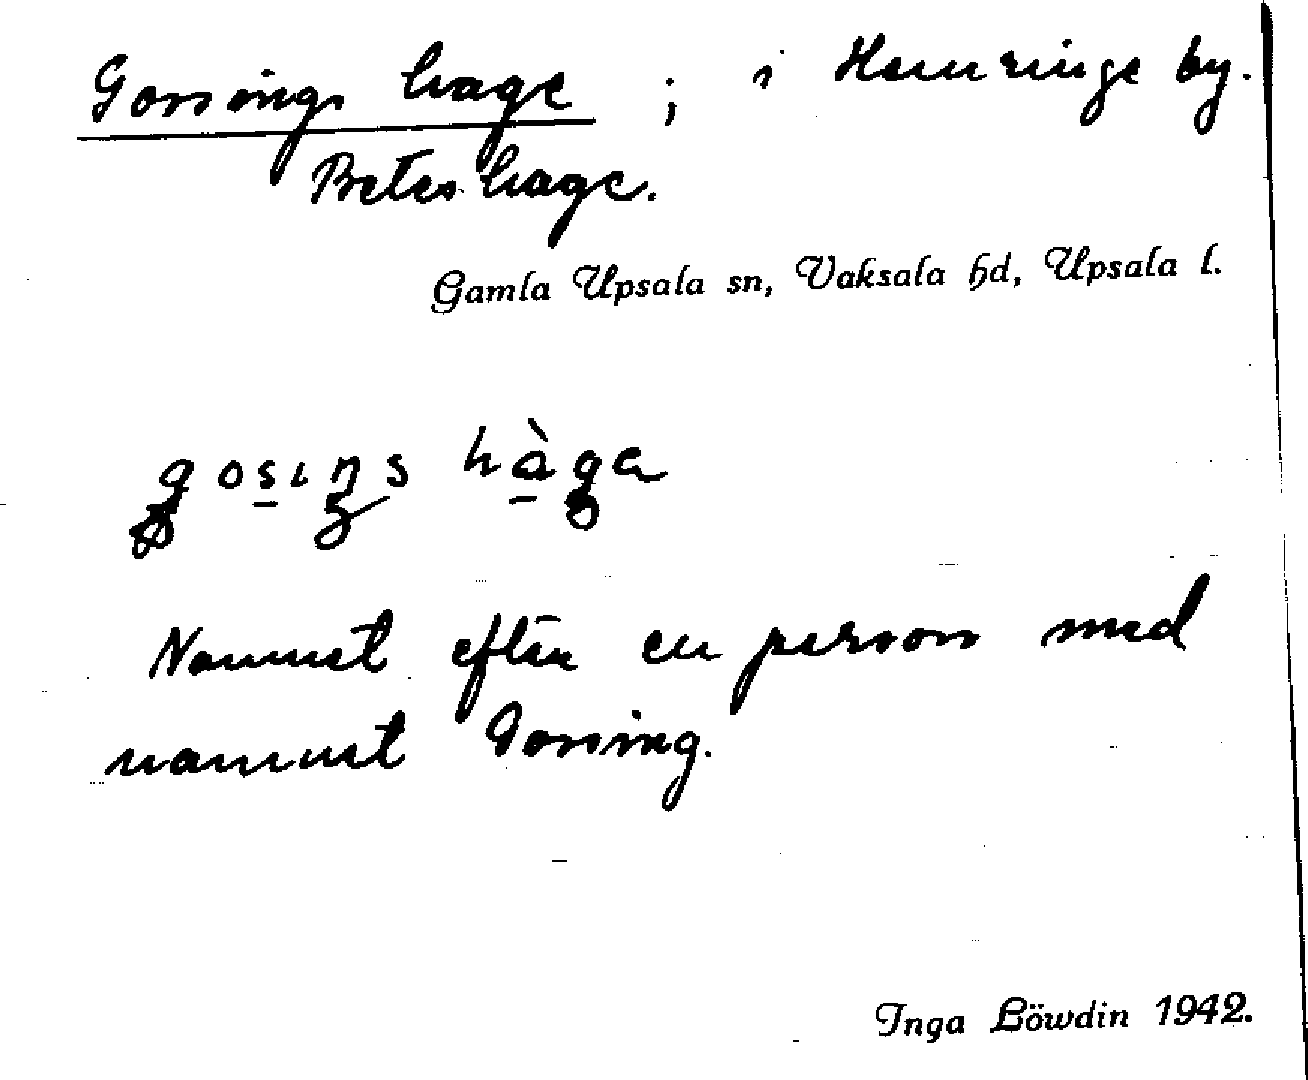 Gorsings hage ; i Hemringe by.
Beteshage.
Gamla Upsala sn, Vaksala hd, Upsala l.
gosıŋs hàga
Namnet efter en person med
namnet Gorsing.
Inga Löwdin 1942.